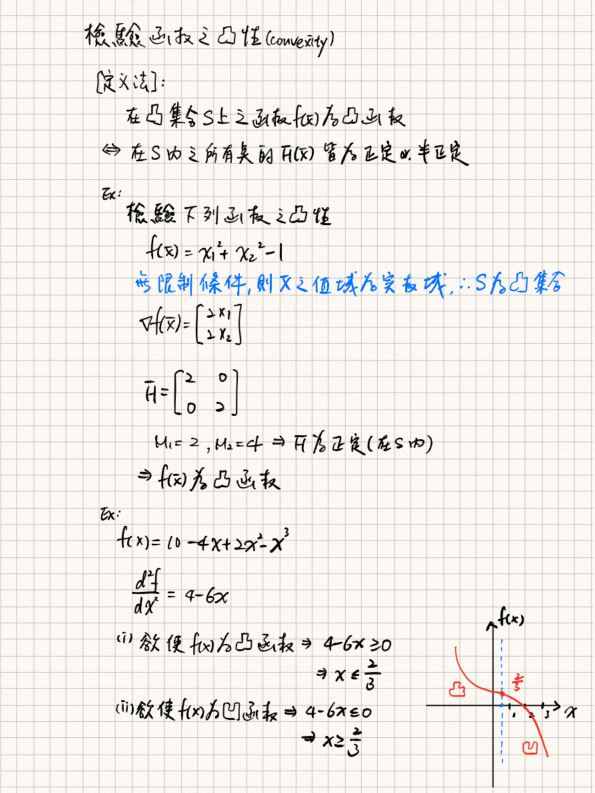 檢驗函數之凸性(convexity)
[定义法]:
在凸集合S上之函数f(x̄)為凸函数
⇔ 在S內之所有點的H̄(x̄)皆為正定or半正定
Ex:
檢驗下列函数之凸性
f(x̄) = x₁² + x₂² - 1
無限制條件,則X之值域為实数域,∴S為凸集合
∇f(x̄) = [2x₁
2x₂]
H̄ = [2 0
0 2]
M₁ = 2, M₂ = 4 ⇒ H̄為正定(在S內)
⇒ f(x̄)為凸函数
Ex:
f(x) = 10 - 4x + 2x² - x³
d²f/dx² = 4 - 6x
(i) 欲使f(x)為凸函数 ⇒ 4 - 6x ≥ 0
⇒ x ≤ 2/3
(ii) 欲使f(x)為凹函数 ⇒ 4 - 6x ≤ 0
⇒ x ≥ 2/3
f(x)
凸
2/3
1 2 3 x
凹